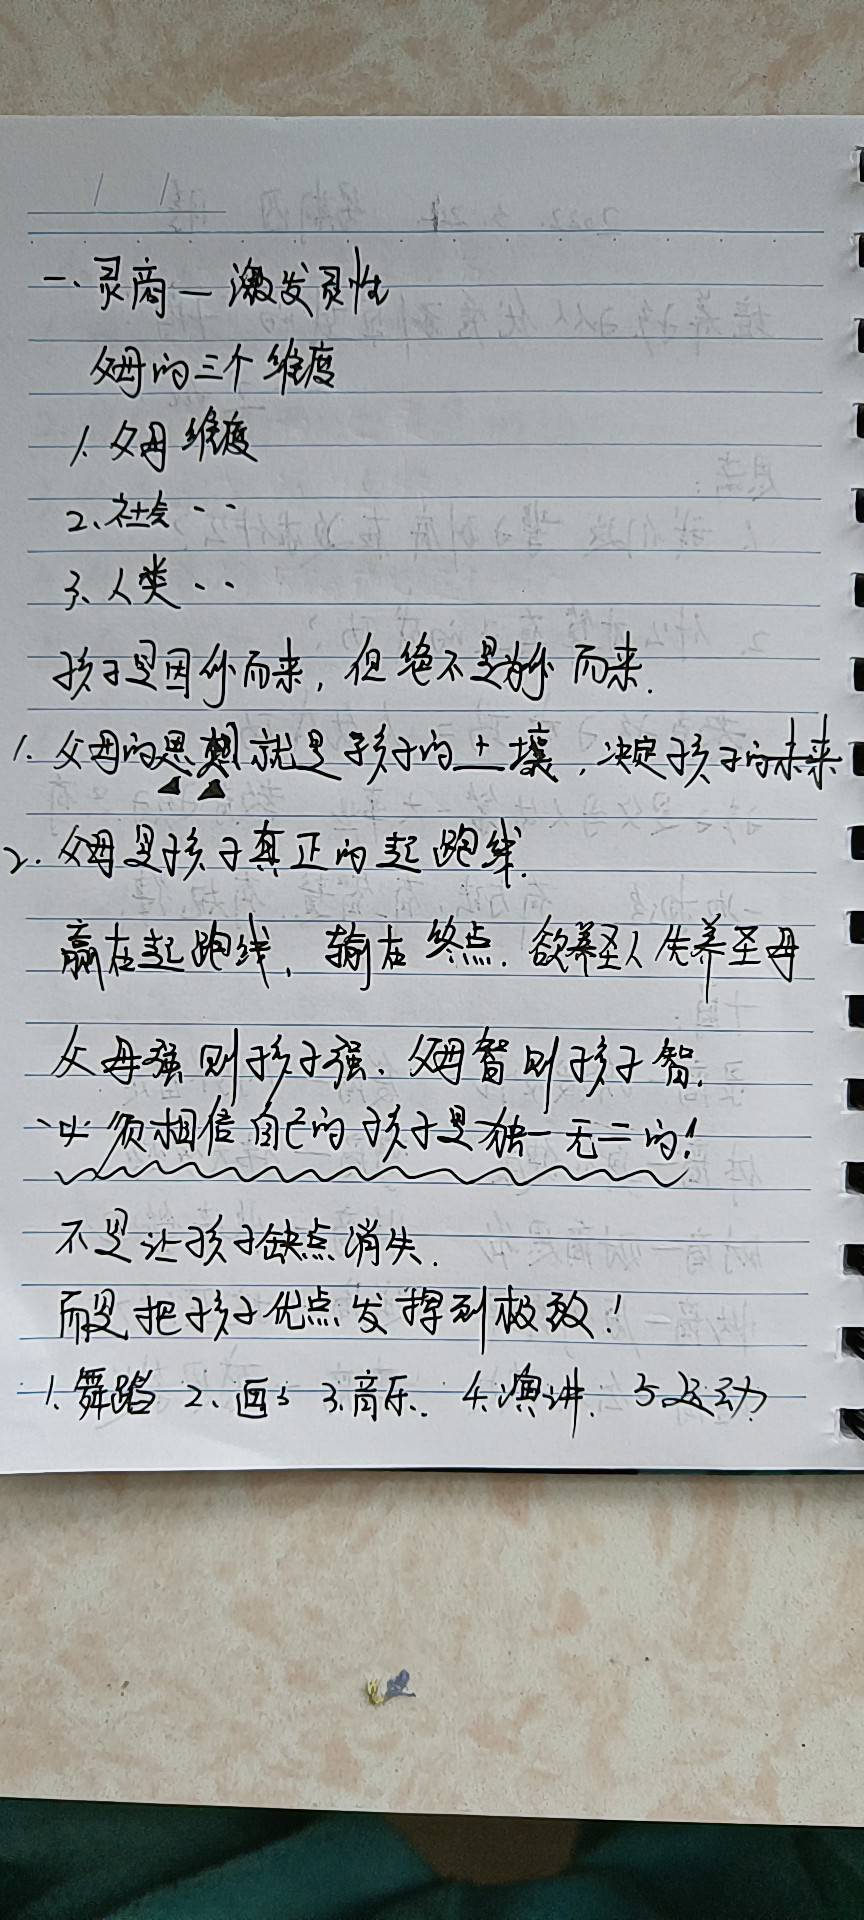 一、灵商—激发灵性
父母的三个维度
1. 父母维度
2、社会··
3、人类··
孩子是因你而来，但绝不是为你而来.
1. 父母的思想就是孩子的土壤，决定孩子的未来
2. 父母是孩子真正的起跑线.
赢在起跑线，输在终点. 欲养圣人先养圣母
父母强则孩子强、父母智则孩子智.
必须相信自己的孩子是独一无二的！
不是让孩子缺点消失.
而是把孩子优点发挥到极致！
1. 舞蹈 2、画 3.音乐. 4.演讲. 5运动